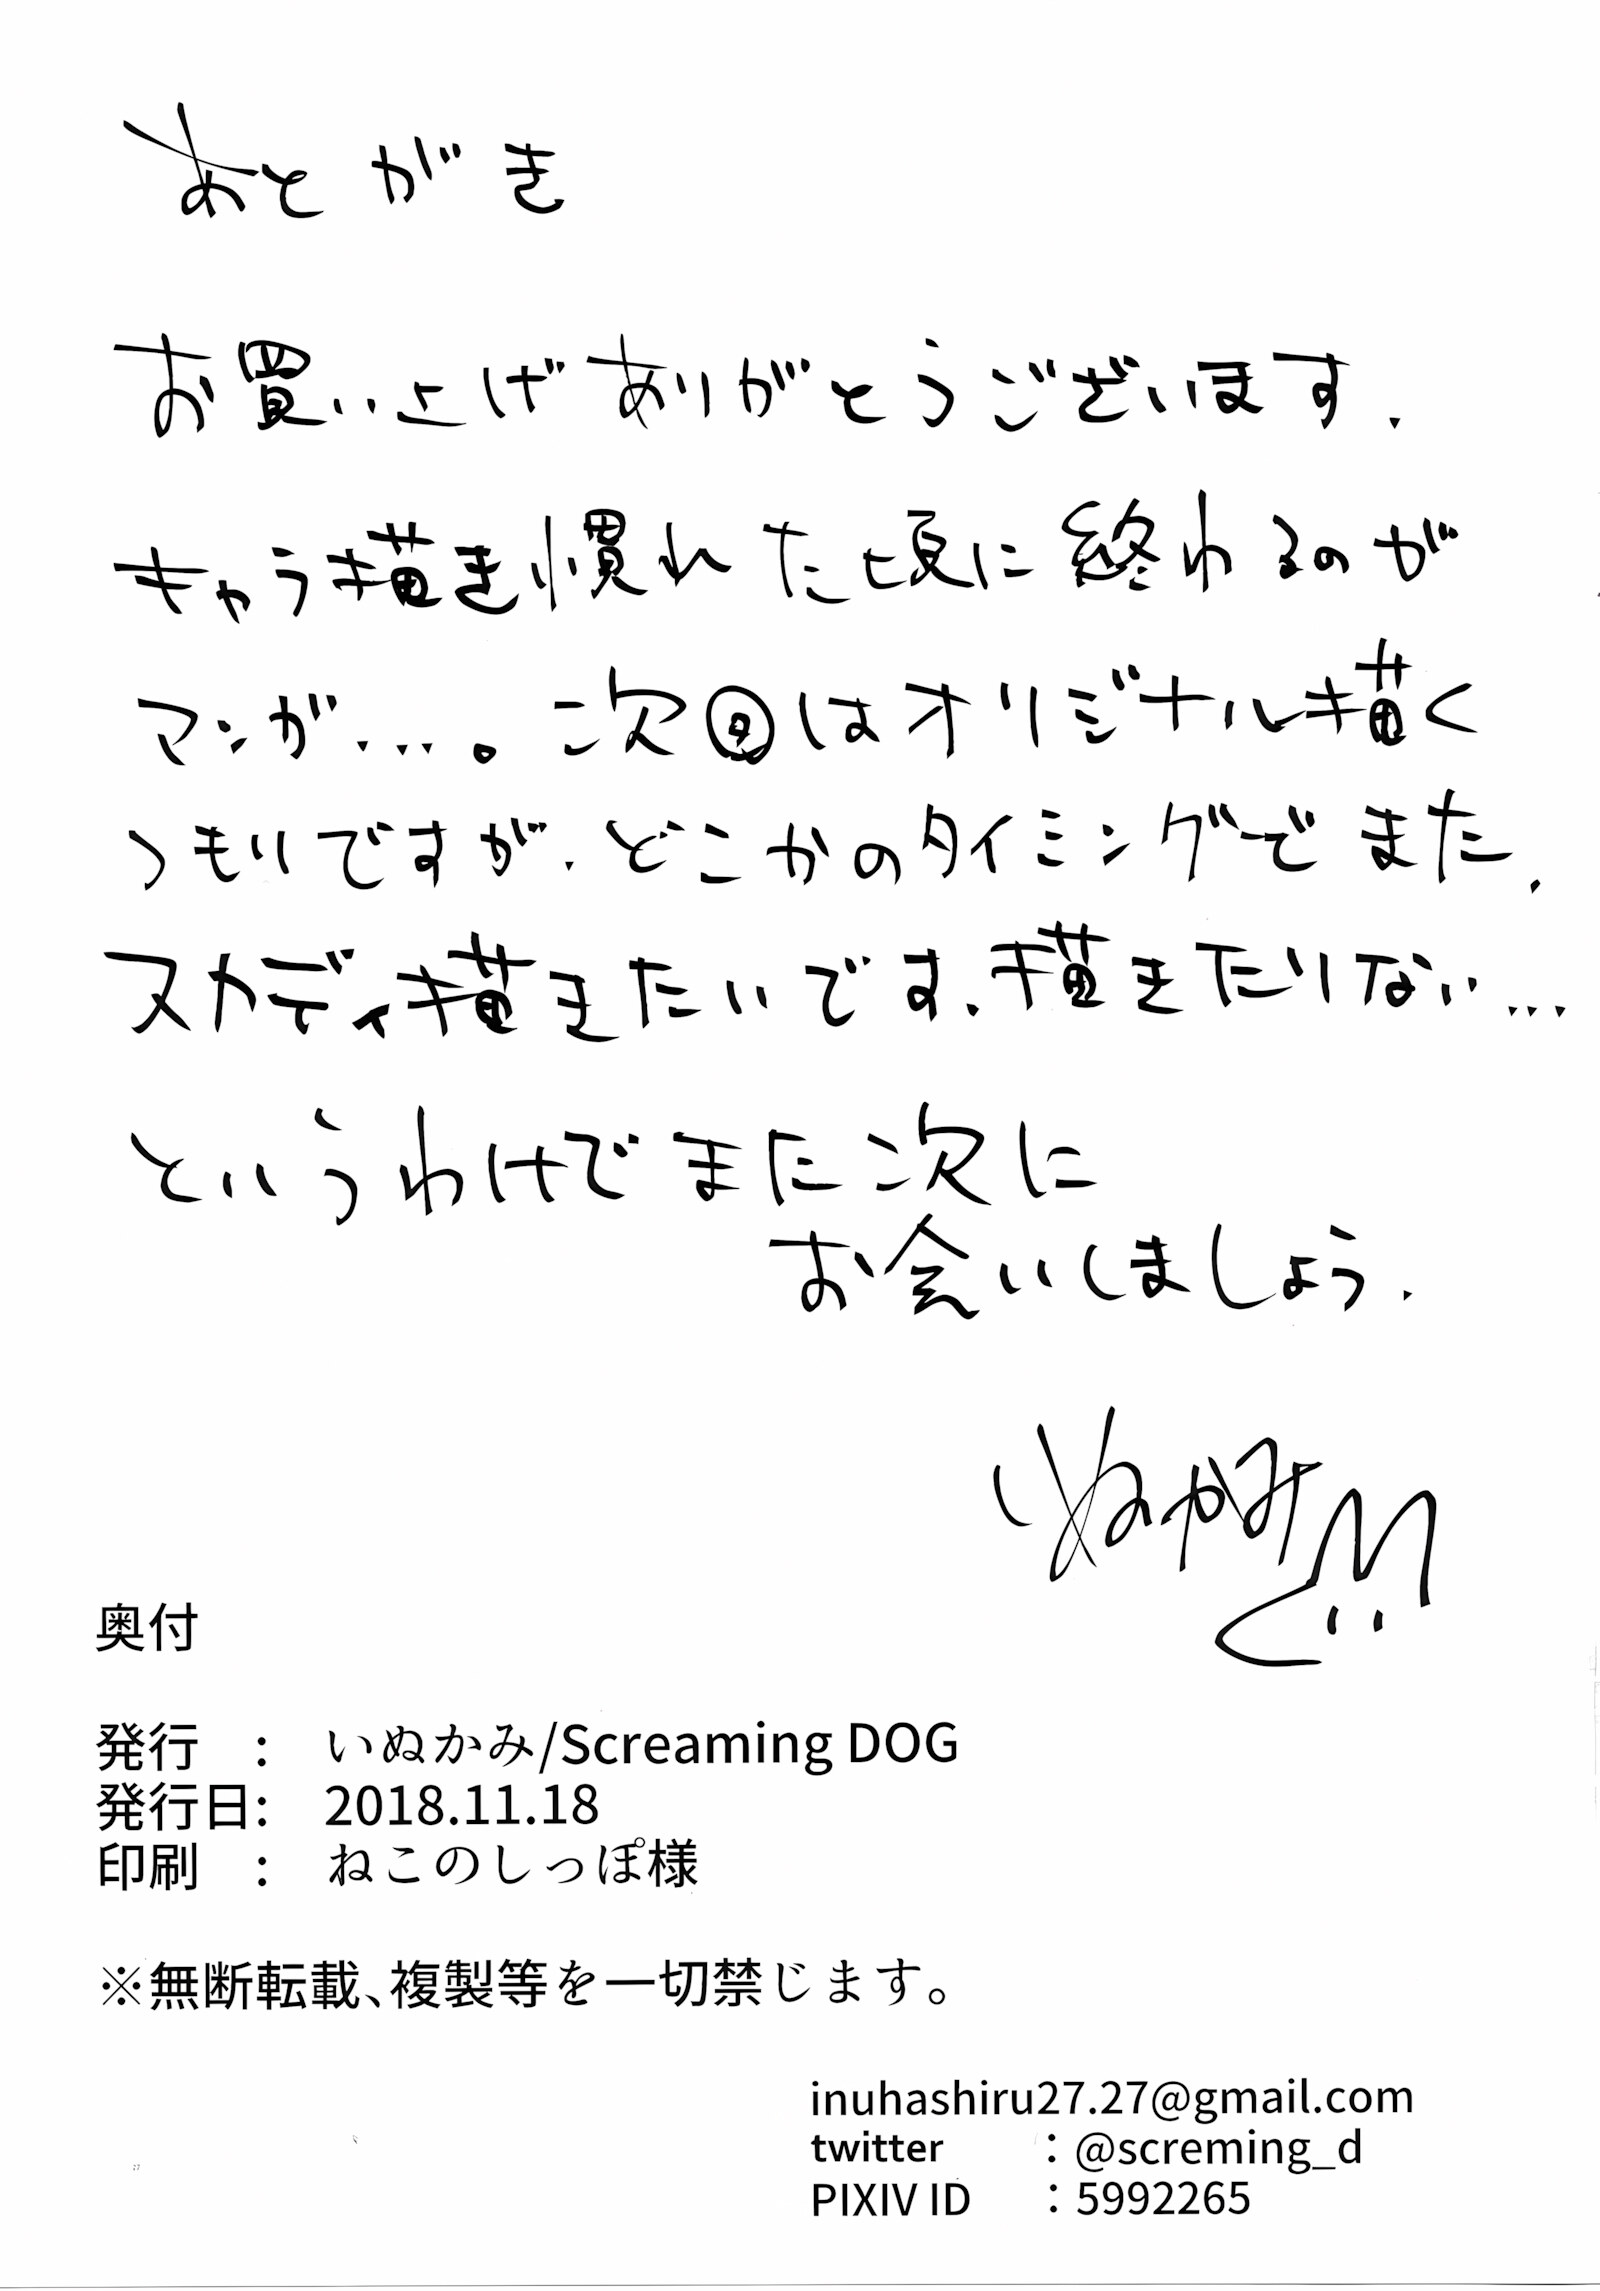 あとがき
お買い上げありがとうございます.
キャラ描き慣れた頃に終わるのが
マンガ....。次回はオリジナル描く
つもりですが.どこかのタイミングでまた.
スカディ描きたいです.描きたりない...
というわけでまた次に
お会いしましょう.
いぬかみ
奥付
発行 : いぬかみ/Screaming DOG
発行日: 2018.11.18
印刷 : ねこのしっぽ様
※無断転載、複製等を一切禁じます。
inuhashiru27.27@gmail.com
twitter : @screming_d
PIXIV ID : 5992265